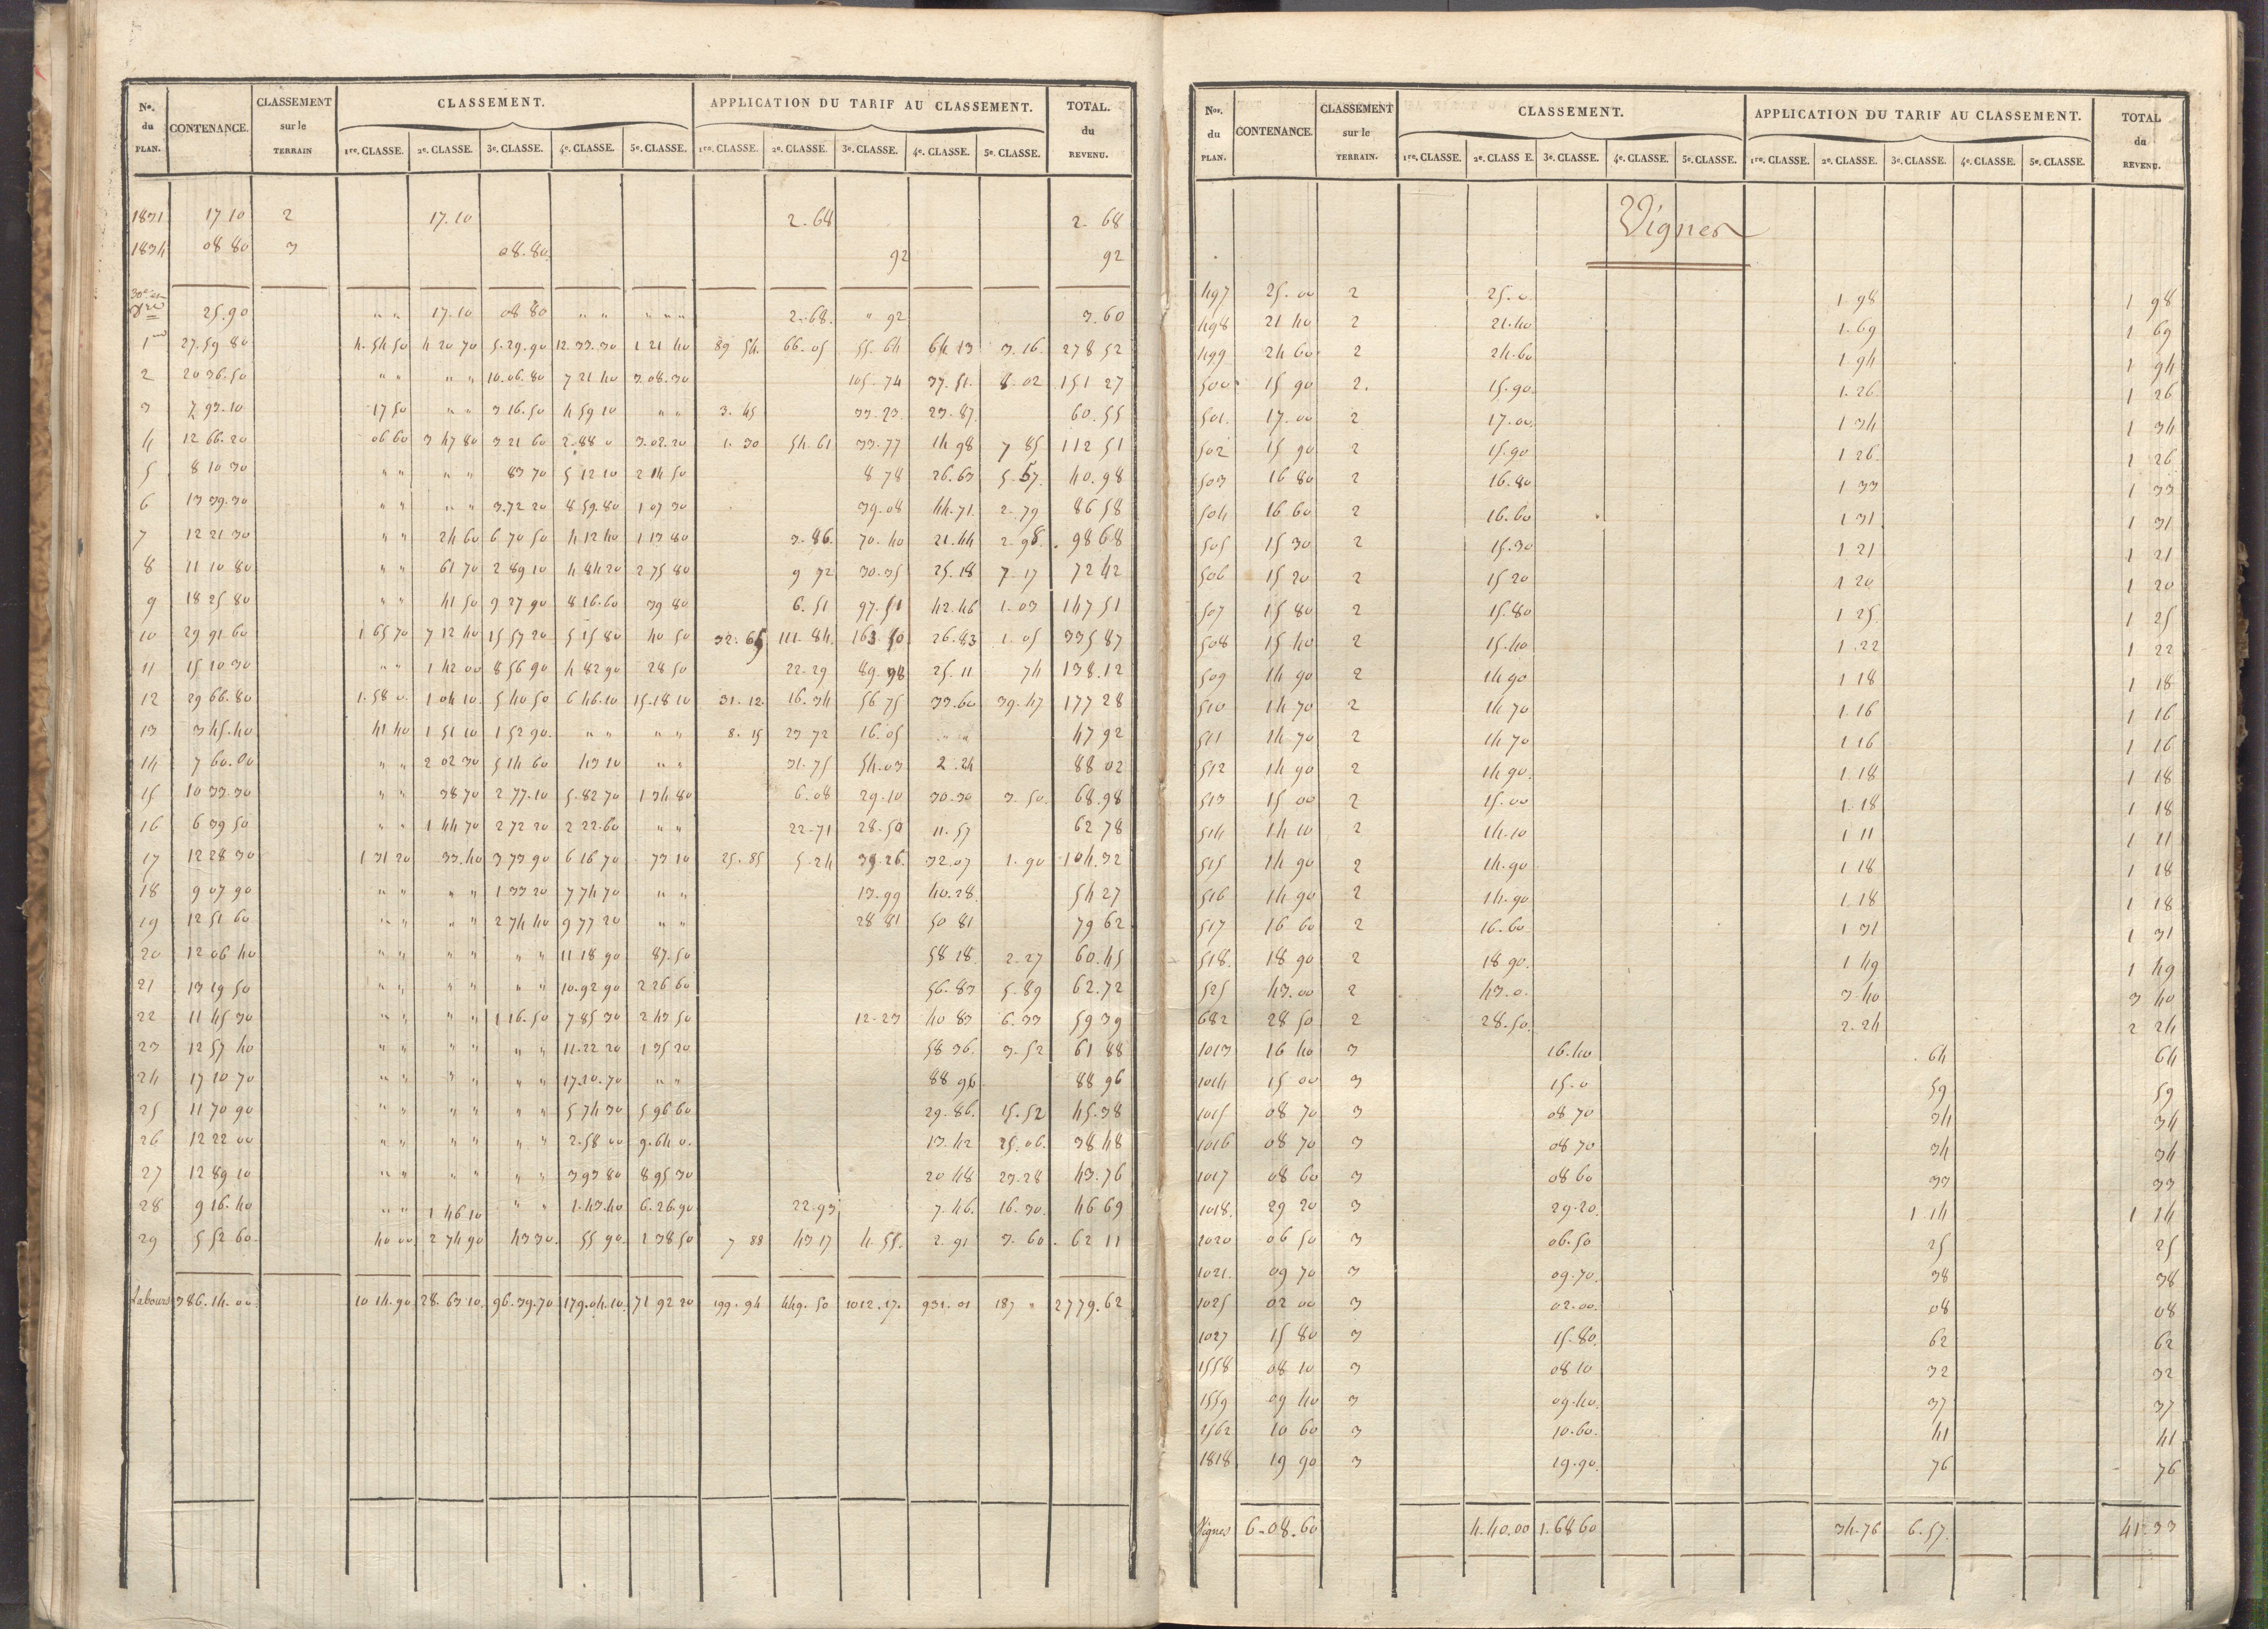 Nos. du PLAN. CONTENANCE. CLASSEMENT sur le TERRAIN CLASSEMENT. APPLICATION DU TARIF AU CLASSEMENT. TOTAL. du REVENU.
1re. CLASSE. 2e. CLASSE. 3e. CLASSE. 4e. CLASSE. 5e. CLASSE. 1re. CLASSE. 2e. CLASSE. 3e. CLASSE. 4e. CLASSE. 5e. CLASSE.
1831 17 10 2 17.10 2.68 2.68
1834 08 80 3 08.80 92 92
25.90 " " 17.10 08 80 " " " " " 2.68. " 92 3.60
1 27.59 80 4.54 50 4 20 70 5.29.90 12.33.30 1 21 40 89 54. 66.05 55.64 64 13 3.16. 278 52
2 20 36.50 " " " " 10.06.80 7 21 40 3.08.30 105.74 37.51. 8.02 151 27
3 7 93.10 17 50 " " 3 16.50 4 59 10 " " 3.45 33.23 23.87. 60.55
4 12 66.20 06 60 3 47 80 3 21 60 2.88 0 3.02.20 1.30 54.61 33.77 14.98 7 85 112 51
5 8 10 30 " " " " 83 70 5 12 10 2 14 50 8 78 26.63 5.57. 40.98
6 13 39.30 " " " " 3.72 20 8 59.80 1 07 30 39.08 44.71. 2.79 86 58
7 12 21 30 " " 24 60 6 70 50 4 12 40 1 13 80 3.86. 70.40 21.44 2.98. 98 68
8 11 10 80 " " 61 70 2 89 10 4 84 20 2 75 80 9 72 30.35 25.18 7.17 72 42
9 18 25 80 " " 41 50 9 27 90 8 16.60 39 80 6.51 97.51 42.46 1.03 147 51
10 29 91 60 1 65 70 7 12 40 15 57 20 5 15 80 40 50 32.65 111.84. 163 50 26.83 1.05 335 87
11 15 10 30 " " 1 42 00 8 56 90 4 82 90 28 50 22.29 89.98 25.11 74 138.12
12 29 66.80 1.58 0. 1 04 10. 5 40 50 6 46.10 15.18 10 31.12. 16.34 56 75 33.60 39.47 177 28
13 3 45.40 41 40 1 51 10 1 52 90. " " " " 8.15 23 72 16.05 " " 47 92
14 7 60.00 " " 2 02 30 5 14 60 43 10 " " 31.75 54.03 2.24 88 02
15 10 33.30 " " 38 70 2 77.10 5.82 70 1 34 80 6.08 29.10 30.30 3.50. 68.98
16 6 39 50 " " 1 44 70 2 72 20 2 22.60 " " 22.71 28.50 11.57 62 78
17 12 28 30 1 31 20 33.40 3 73 90 6 16 70 73 10 25.85 5.24 39.26. 32.07 1.90 104.32
18 9 07 90 " " " " 1 33 20 7 74 70 " " 13.99 40.28. 54 27
19 12 51 60 " " " " 2 74 40 9 77 20 " " 28 81 50 81 79 62
20 12 06 40 " " " " " " 11 18 90 87.50 58 18. 2.27 60.45
21 13 19 50 " " " " " " 10.92 90 2 26 60 56.83 5.89 62.72
22 11 45 30 " " " " 1 16.50 7 85 30 2 43 50 12.23 40 83 6.33 59 39
23 12 57 40 " " " " " " 11.22 20 1 35 20 58 36. 3.52 61 88
24 17 10 70 " " " " " " 17.10.70 " " 88 96 88 96
25 11 70 90 " " " " " " 5 74 30 5 96 60 29.86. 15.52 45.38
26 12 22 00 " " " " " " 2.58 00 9.64 0. 13.42 25.06. 38 48
27 12 89 10 " " " " " " 3 93 80 8 95 30 20 48 23.28 43.76
28 9 16.40 " " 1 46 10 " " 1.43.40 6.26.90 22.93 7.46. 16.30. 46 69
29 5 52 60. 40 00 2 74 90 43 30. 55 90. 1 38 50 7 88 43 17 4.55. 2.91 3.60. 62 11
Labours 386.14.00 10 14.90 28.63 10. 96.39.70 179.04.10. 71 92 20 199.94 449.50 1012.17. 931.01 187 " 2779.62
Nos. du PLAN. CONTENANCE. CLASSEMENT sur le TERRAIN. CLASSEMENT. APPLICATION DU TARIF AU CLASSEMENT. TOTAL du REVENU.
1re. CLASSE. 2e. CLASS E. 3e. CLASSE. 4e. CLASSE. 5e. CLASSE. 1re. CLASSE. 2e. CLASSE. 3e. CLASSE. 4e. CLASSE. 5e. CLASSE.
Vignes
497 25.00 2 25.0. 1.98 1 98
498 21 40 2 21.40 1.69 1 69
499 24 60 2 24.60 1.94 1 94
500 15 90 2. 15.90. 1.26 1 26
501. 17.00 2 17.00. 1 34 1 34
502 15 90 2 15.90 1 26. 1 26
503 16 80 2 16.80 1 33 1 33
504 16 60 2 16.60 1 31 1 31
505 15 30 2 15.30 1 21 1 21
506 15 20 2 15 20 1 20 1 20
507 15 80 2 15.80 1 25. 1 25
508 15 40 2 15.40 1.22 1 22
509 14 90 2 14 90 1 18 1 18
510 14 70 2 14 70 1.16 1 16
511 14 70 2 14 70 1 16 1 16
512 14 90 2 14 90. 1.18 1 18
513 15 00 2 15.00 1.18 1 18
514 14 10 2 14.10 1 11 1 11
515 14 90 2 14.90 1 18 1 18
516 14 90 2 14.90 1.18 1 18
517 16 60 2 16.60 1 31 1 31
518. 18 90 2 18 90. 1 49 1 49
525 43.00 2 43.0. 3 40 3 40
682 28 50 2 28.50. 2.24 2 24
1013 16 40 3 16.40 64 64
1014 15 00 3 15.0 59 59
1015 08 70 3 08 70 34 34
1016 08 70 3 08 70 34 34
1017 08 60 3 08 60 33 33
1018. 29 20 3 29.20. 1 14 1 14
1020 06 50 3 06.50 25 25
1021. 09 70 3 09.70. 38 38
1025 02 00 3 02.00. 08 08
1027 15 80 3 15.80. 62 62
1558 08 10 3 08 10 32 32
1559 09 40 3 09.40. 37 37
1562 10 60 3 10.60. 41 41
1818 19 90 3 19.90. 76 76
Vignes 6.08.60 4.40.00 1.68 60 34.76 6.57. 41.33